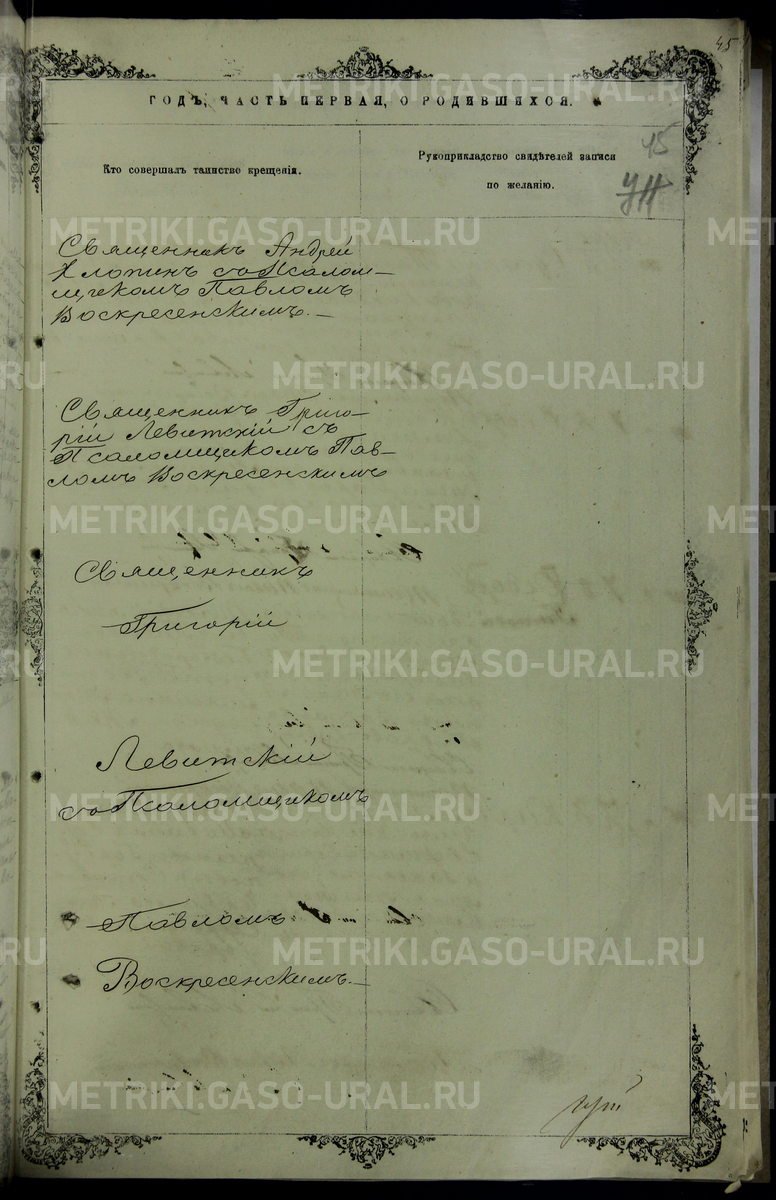 45
ГОДЪ, ЧАСТЬ ПЕРВАЯ, О РОДИВШИХСЯ.
45
Кто совершалъ таинство крещенія.
Рукоприкладство свидѣтелей записи
по желанію.
Священникъ Андрей
Хлопинъ со Псалом-
щикомъ Павломъ
Воскресенскимъ. —
Священникъ Григо-
рій Левитскій съ
Псаломщикомъ Пав-
ломъ Воскресенскимъ
Священникъ
Григорій
Левитскій
со Псаломщикомъ
Павломъ
Воскресенскимъ. —
METRIKI.GASO-URAL.RU